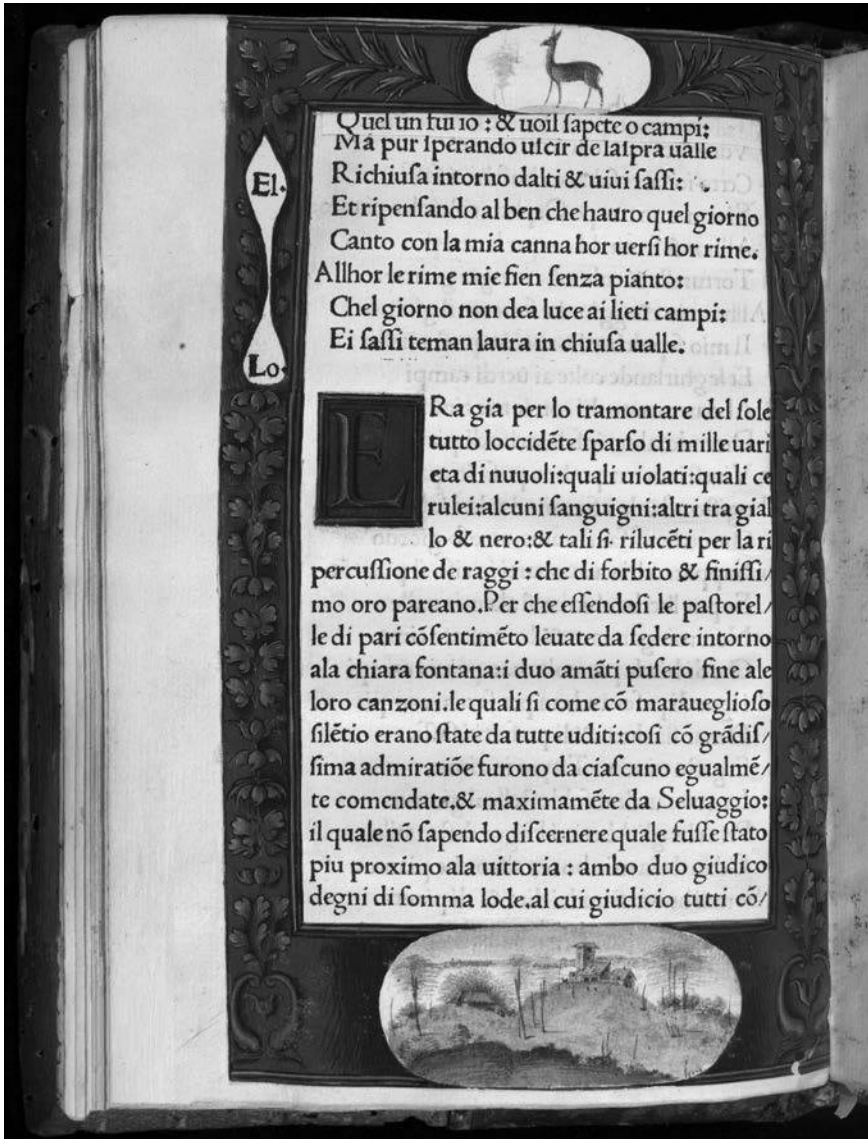 Quel un fui io : & uoil sapete o campi:
Ma pur sperando uscir de laspra ualle
El.
Richiusa intorno dalti & uiui sassi:
Et ripensando al ben che hauro quel giorno
Canto con la mia canna hor uersi hor rime.
Allhor le rime mie fien senza pianto:
Chel giorno non dea luce ai lieti campi:
Ei sassi teman laura in chiusa ualle.
Lo.
ERa gia per lo tramontare del sole
tutto loccidēte sparso di mille uari
eta di nuuoli:quali uiolati:quali ce
rulei:alcuni sanguigni:altri tra gial
lo & nero:& tali si· rilucēti per la ri
percussione de raggi : che di forbito & finissi/
mo oro pareano.Per che essendosi le pastorel/
le di pari cōsentimēto leuate da sedere intorno
ala chiara fontana:i duo amāti pusero fine ale
loro canzoni.le quali si come cō maraueglioso
silētio erano state da tutte uditi:cosi cō grādis/
sima admiratiōe furono da ciascuno egualmē/
te comendate.& maximamēte da Seluaggio:
il quale nō sapendo discernere quale fusse stato
piu proximo ala uittoria : ambo duo giudico
degni di somma lode.al cui giudicio tutti cō/